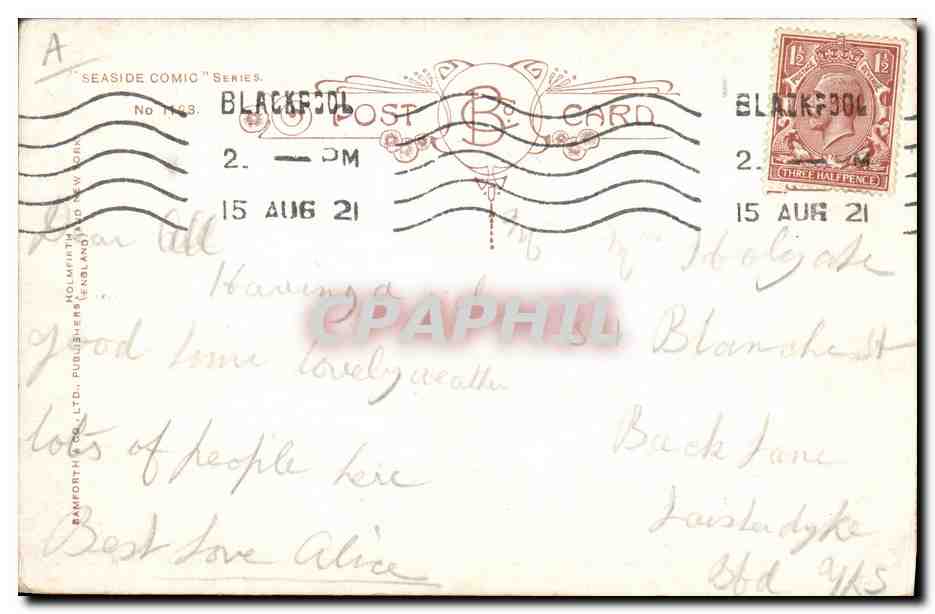 A
"SEASIDE COMIC" SERIES.
No
POST Bc CARD
BLACKPOOL
2. — PM
15 AUG 21
BLACKPOOL
2. — PM
15 AUG 21
1½ 1½
POSTAGE REVENUE
THREE HALFPENCE
BAMFORTH & CO., LTD., PUBLISHERS
HOLMFIRTH
(ENGLAND) AND NEW YORK
Dear All
Having a
good time lovely weather
lots of people here
Best Love Alice
M Mrs Holgate
Blanche St
Back Lane
Laisterdyke
Bfd Yks
CPAPHIL